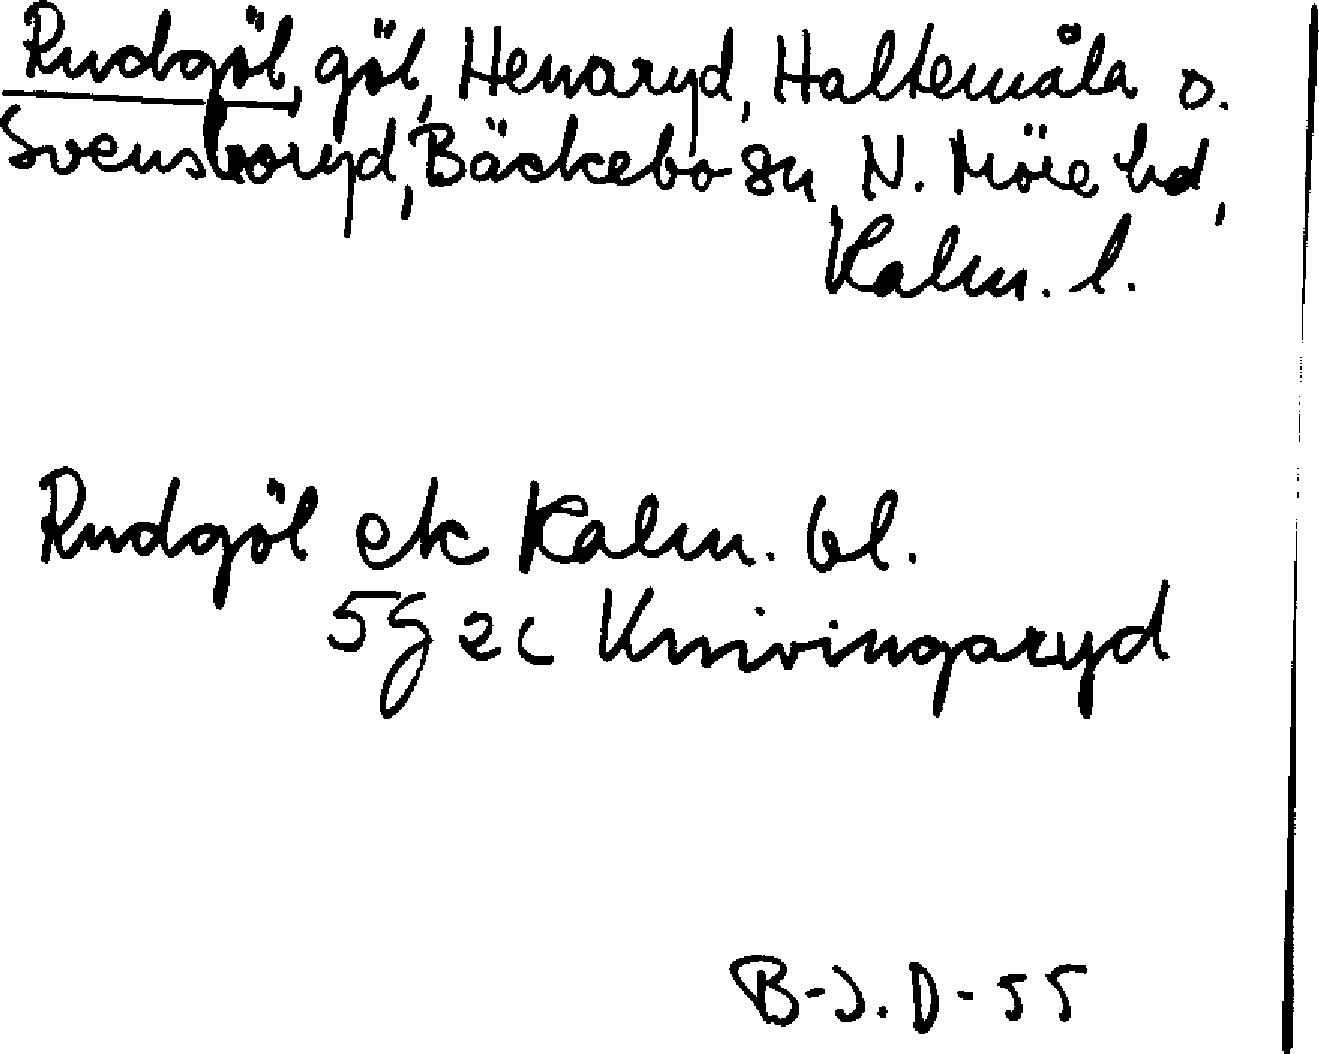 Rudgöl, göl, Henaryd, Haltemåla o.
Svensboryd, Bäckebo sn, N. Möre hd,
Kalm. l.
Rudgöl ek Kalm. bl.
5G 2c Knivingaryd
B-J. D-55